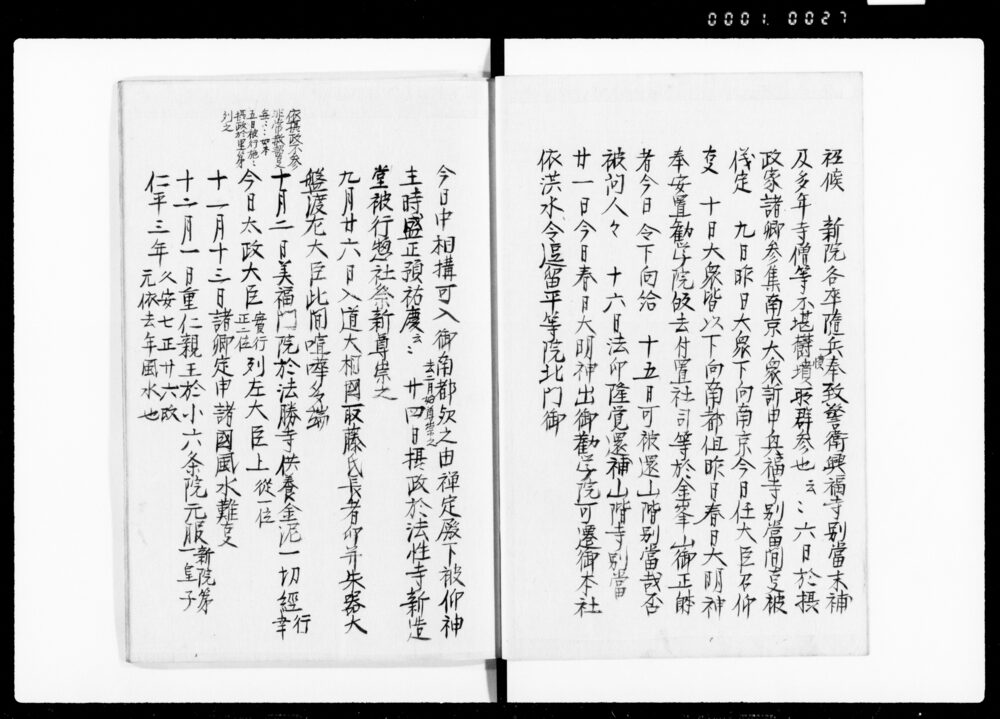 0001 0027
祗候　新院各率随兵奉致警衛興福寺別當未補
及多年寺僧等不堪欝憤群参也云々六日於摂
政家諸卿参集南京大衆訴申興福寺別當間事被
儀定　九日昨日大衆下向南京今日任大臣召仰
事　十日大衆皆以下向南都但昨日春日大明神
奉安置勧学院飯去付置社司等於金峯山御正躰
者今日令下向給　十五日可被還山階別當哉否
被問人々　十六日法印隆覚還補山階寺別當
廿一日今日春日大明神出御勧学院可遷御本社
依洪水令逗留平等院北門御
今日中相構可入御南都欤之由禅定殿下被仰神
主時盛正預祐慶云々　廿四日摂政於法性寺新造
堂被行惣社祭新尊崇之
九月廿六日入道大相國取藤氏長者印并朱器大
盤渡左大臣此間喧嘩多端
十月二日美福門院於法勝寺供養金泥一切經行幸
依摂政不参
五日被行施
摂政於里第
列之
今日太政大臣實行正二位列左大臣上従一位
十一月十三日諸卿定申諸國風水難事
十二月一日重仁親王於小六条院元服新院第一皇子
仁平三年久安七正廿六改元依去年風水也